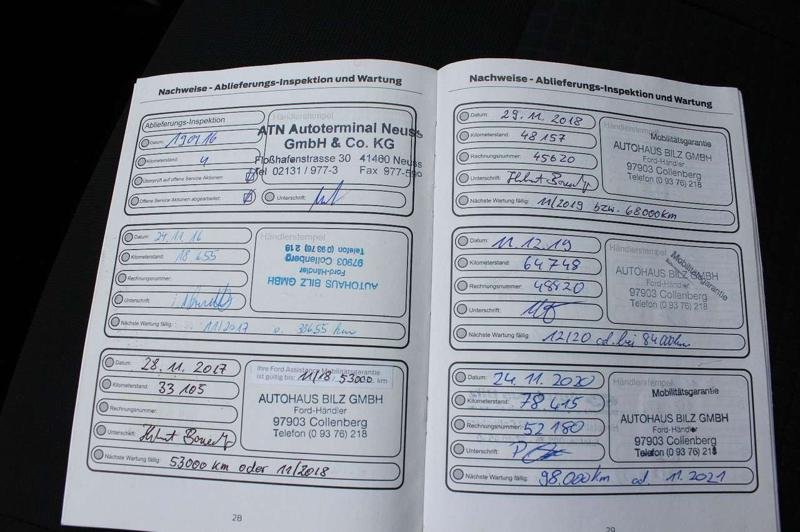 Nachweise - Ablieferungs-Inspektion und Wartung
Ablieferungs-Inspektion
Datum: 190416
Kilometerstand: 4
Überprüft auf offene Service Aktionen
Offene Service Aktionen abgearbeitet:
Händlerstempel
ATN Autoterminal Neuss
GmbH & Co. KG
Floßhafenstrasse 30 41460 Neuss
Tel 02131 / 977-3 Fax 977-590
Unterschrift:
Datum: 24.11.16
Kilometerstand: 18 655
Rechnungsnummer:
Unterschrift:
Händlerstempel
AUTOHAUS BILZ GMBH
Ford-Händler
97903 Collenberg
Telefon (0 93 76) 2 18
Nächste Wartung fällig: 11/2017 o. 38655 km
Datum: 28.11.2017
Kilometerstand: 33 105
Rechnungsnummer:
Unterschrift:
Ihre Ford Assistance Mobilitätsgarantie
ist gültig bis: 11/18 53000 km
AUTOHAUS BILZ GMBH
Ford-Händler
97903 Collenberg
Telefon (0 93 76) 218
Nächste Wartung fällig: 53000 km oder 11/2018
28
Nachweise - Ablieferungs-Inspektion und Wartung
Datum: 29.11.2018
Kilometerstand: 48157
Rechnungsnummer: 45620
Unterschrift:
Händlerstempel
Mobilitätsgarantie
AUTOHAUS BILZ GMBH
Ford-Händler
97903 Collenberg
Telefon (0 93 76) 218
Nächste Wartung fällig: 11/2019 bzw. 68000km
Datum: 11.12.19
Kilometerstand: 64748
Rechnungsnummer: 48920
Unterschrift:
Händlerstempel
Mobilitätsgarantie
AUTOHAUS BILZ GMBH
Ford-Händler
97903 Collenberg
Telefon (0 93 76) 218
Nächste Wartung fällig: 12/20 od. bei 84000km
Datum: 24.11.2020
Kilometerstand: 78 415
Rechnungsnummer: 52180
Unterschrift:
Mobilitätsgarantie
AUTOHAUS BILZ GMBH
Ford-Händler
97903 Collenberg
Telefon (0 93 76) 218
Nächste Wartung fällig: 98.000km od. 11.2021
29